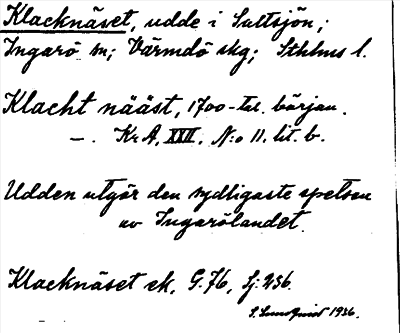 Klacknäset, udde i Saltsjön;
Ingarö sn; Värmdö skg; Sthlms l.
Klacht nääst, 1700-tal. början.
—. Kr A, XXII, N:o 11. lit. b.
Udden utgör den sydligaste spetsen
av Ingarölandet.
Klacknäset ek, G. 76, Sj: 236.
S. Lundquist 1936.